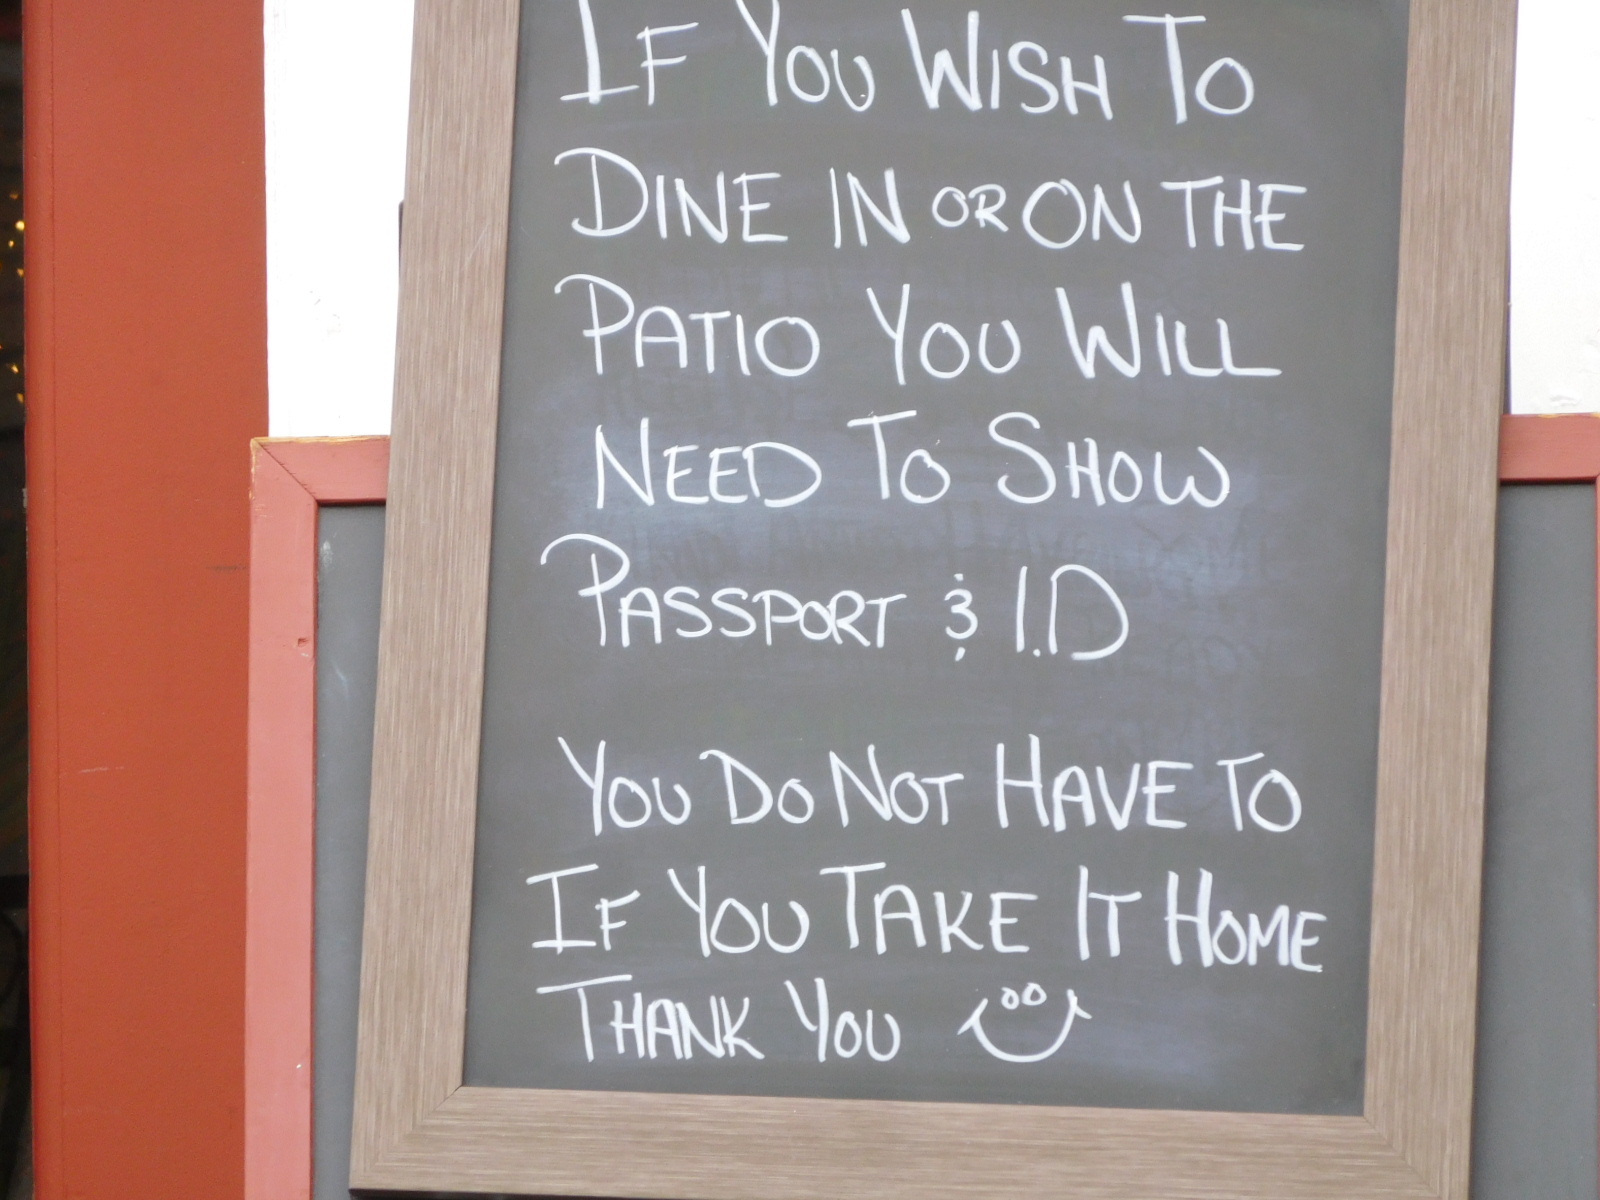 IF YOU WISH TO
DINE IN OR ON THE
PATIO YOU WILL
NEED TO SHOW
PASSPORT & I.D
YOU DO NOT HAVE TO
IF YOU TAKE IT HOME
THANK YOU